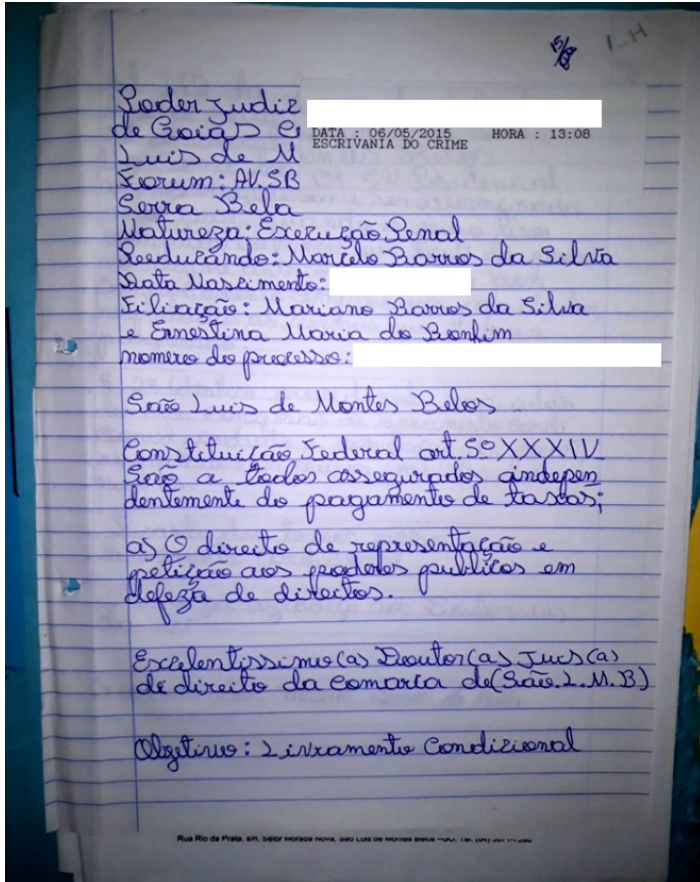 15/
1-H
Poder Judiz
de Goiás
DATA : 06/05/2015 HORA : 13:08
ESCRIVANIA DO CRIME
Luis de M
Forum: AV. SB
Serra Bela
Natureza: Execução Penal
Reeducando: Marcelo Barros da Silva
Data Nascimento:
Filiação: Mariano Barros da Silva
e Ernestina Maria do Bonfim
nomero do processo:
São Luis de Montes Belos
Constituição Federal art. 5º XXXIV
São a todos assegurados indepen
dentemente do pagamento de taxas;
a) O direito de representação e
petição aos poderes publicos em
defeza de direitos.
Excelentissimo(a) Doutor(a) Juis(a)
de direito da comarca de (São. L. M. B)
Objetivo: Livramento Condizional
Rua Rio da Prata, s/n, Setor Morada Nova, São Luis de Montes Belos